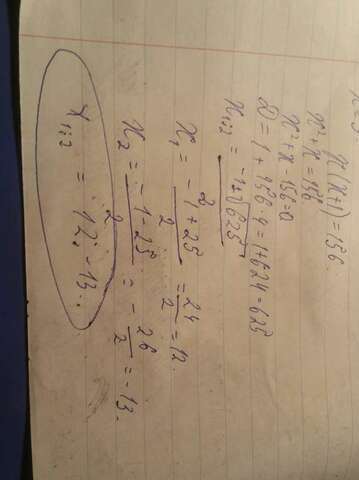 x(x+1)=156.
x²+x=156
x²+x-156=0
D=1+156·4=1+624=625
x₁;₂ = -1±√625 / 2
x₁ = -1+25 / 2 = 24/2 = 12.
x₂ = -1-25 / 2 = -26/2 = -13.
x₁;₂ = 12; -13.